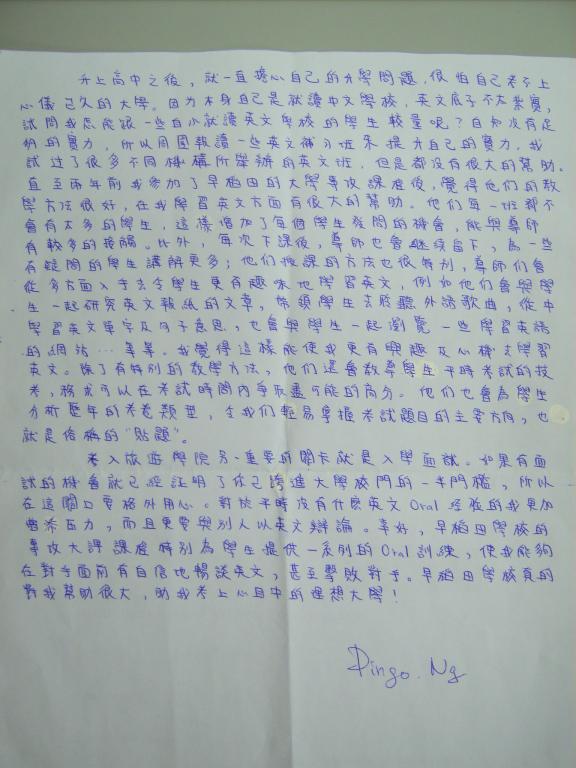 升上高中之後，就一直擔心自己的升學問題，很怕自己考不上
心儀已久的大學。因为本身自己是就讀中文學校，英文底子不太紮實，
試問我怎能跟一些自小就讀英文學校的學生較量呢？自知沒有足
夠的實力，所以周圍報讀一些英文補习班來提升自己的實力。我
試过了很多不同機構所舉辦的英文班，但是都沒有很大的幫助。
直至兩年前我參加了早稻田的大學專攻課程後，覺得他們的教
學方法很好，在我學習英文方面有很大的幫助。他們每一班都不
會有太多的學生，這樣增加了每個學生發問的機會，能與導師
有較多的接觸。此外，每次下課後，導師也會繼續留下，為一些
有疑問的學生講解更多；他們授課的方法也很特別，導師們會
從多方面入手去令學生更有趣味地學習英文，例如他們會與學
生一起研究英文報紙的文章，帶領學生去聆聽外語歌曲，從中
學習英文單字及句子意思，也會與學生一起瀏覽一些學習英語
的網站…等等。我覺得這樣能使我更有興趣及心機去學習
英文。除了有特別的教學方法，他們還會教導學生平時考試的技
考，務求可以在考試時間內爭取盡可能的高分。他們也會為學生
分析歷年的考卷類型，令我們輕易掌握考試題目的主要方向，也
就是俗稱的"貼題"。
考入旅遊學院另一重要的關卡就是入學面試。如果有面
試的機會就已經証明了你已跨進大學校門的一半門檻，所以
在這關口要格外用心。對於平時沒有什麽英文Oral經驗的我更加
倍添压力，而且更要與別人以英文辯論。幸好，早稻田學校的
專攻大課課程特別為學生提供一系列的Oral訓練，使我能夠
在對手面前有自信地暢談英文，甚至擊敗對手。早稻田學校真的
對我幫助很大，助我考上心目中的理想大學！
Dingo. Ng